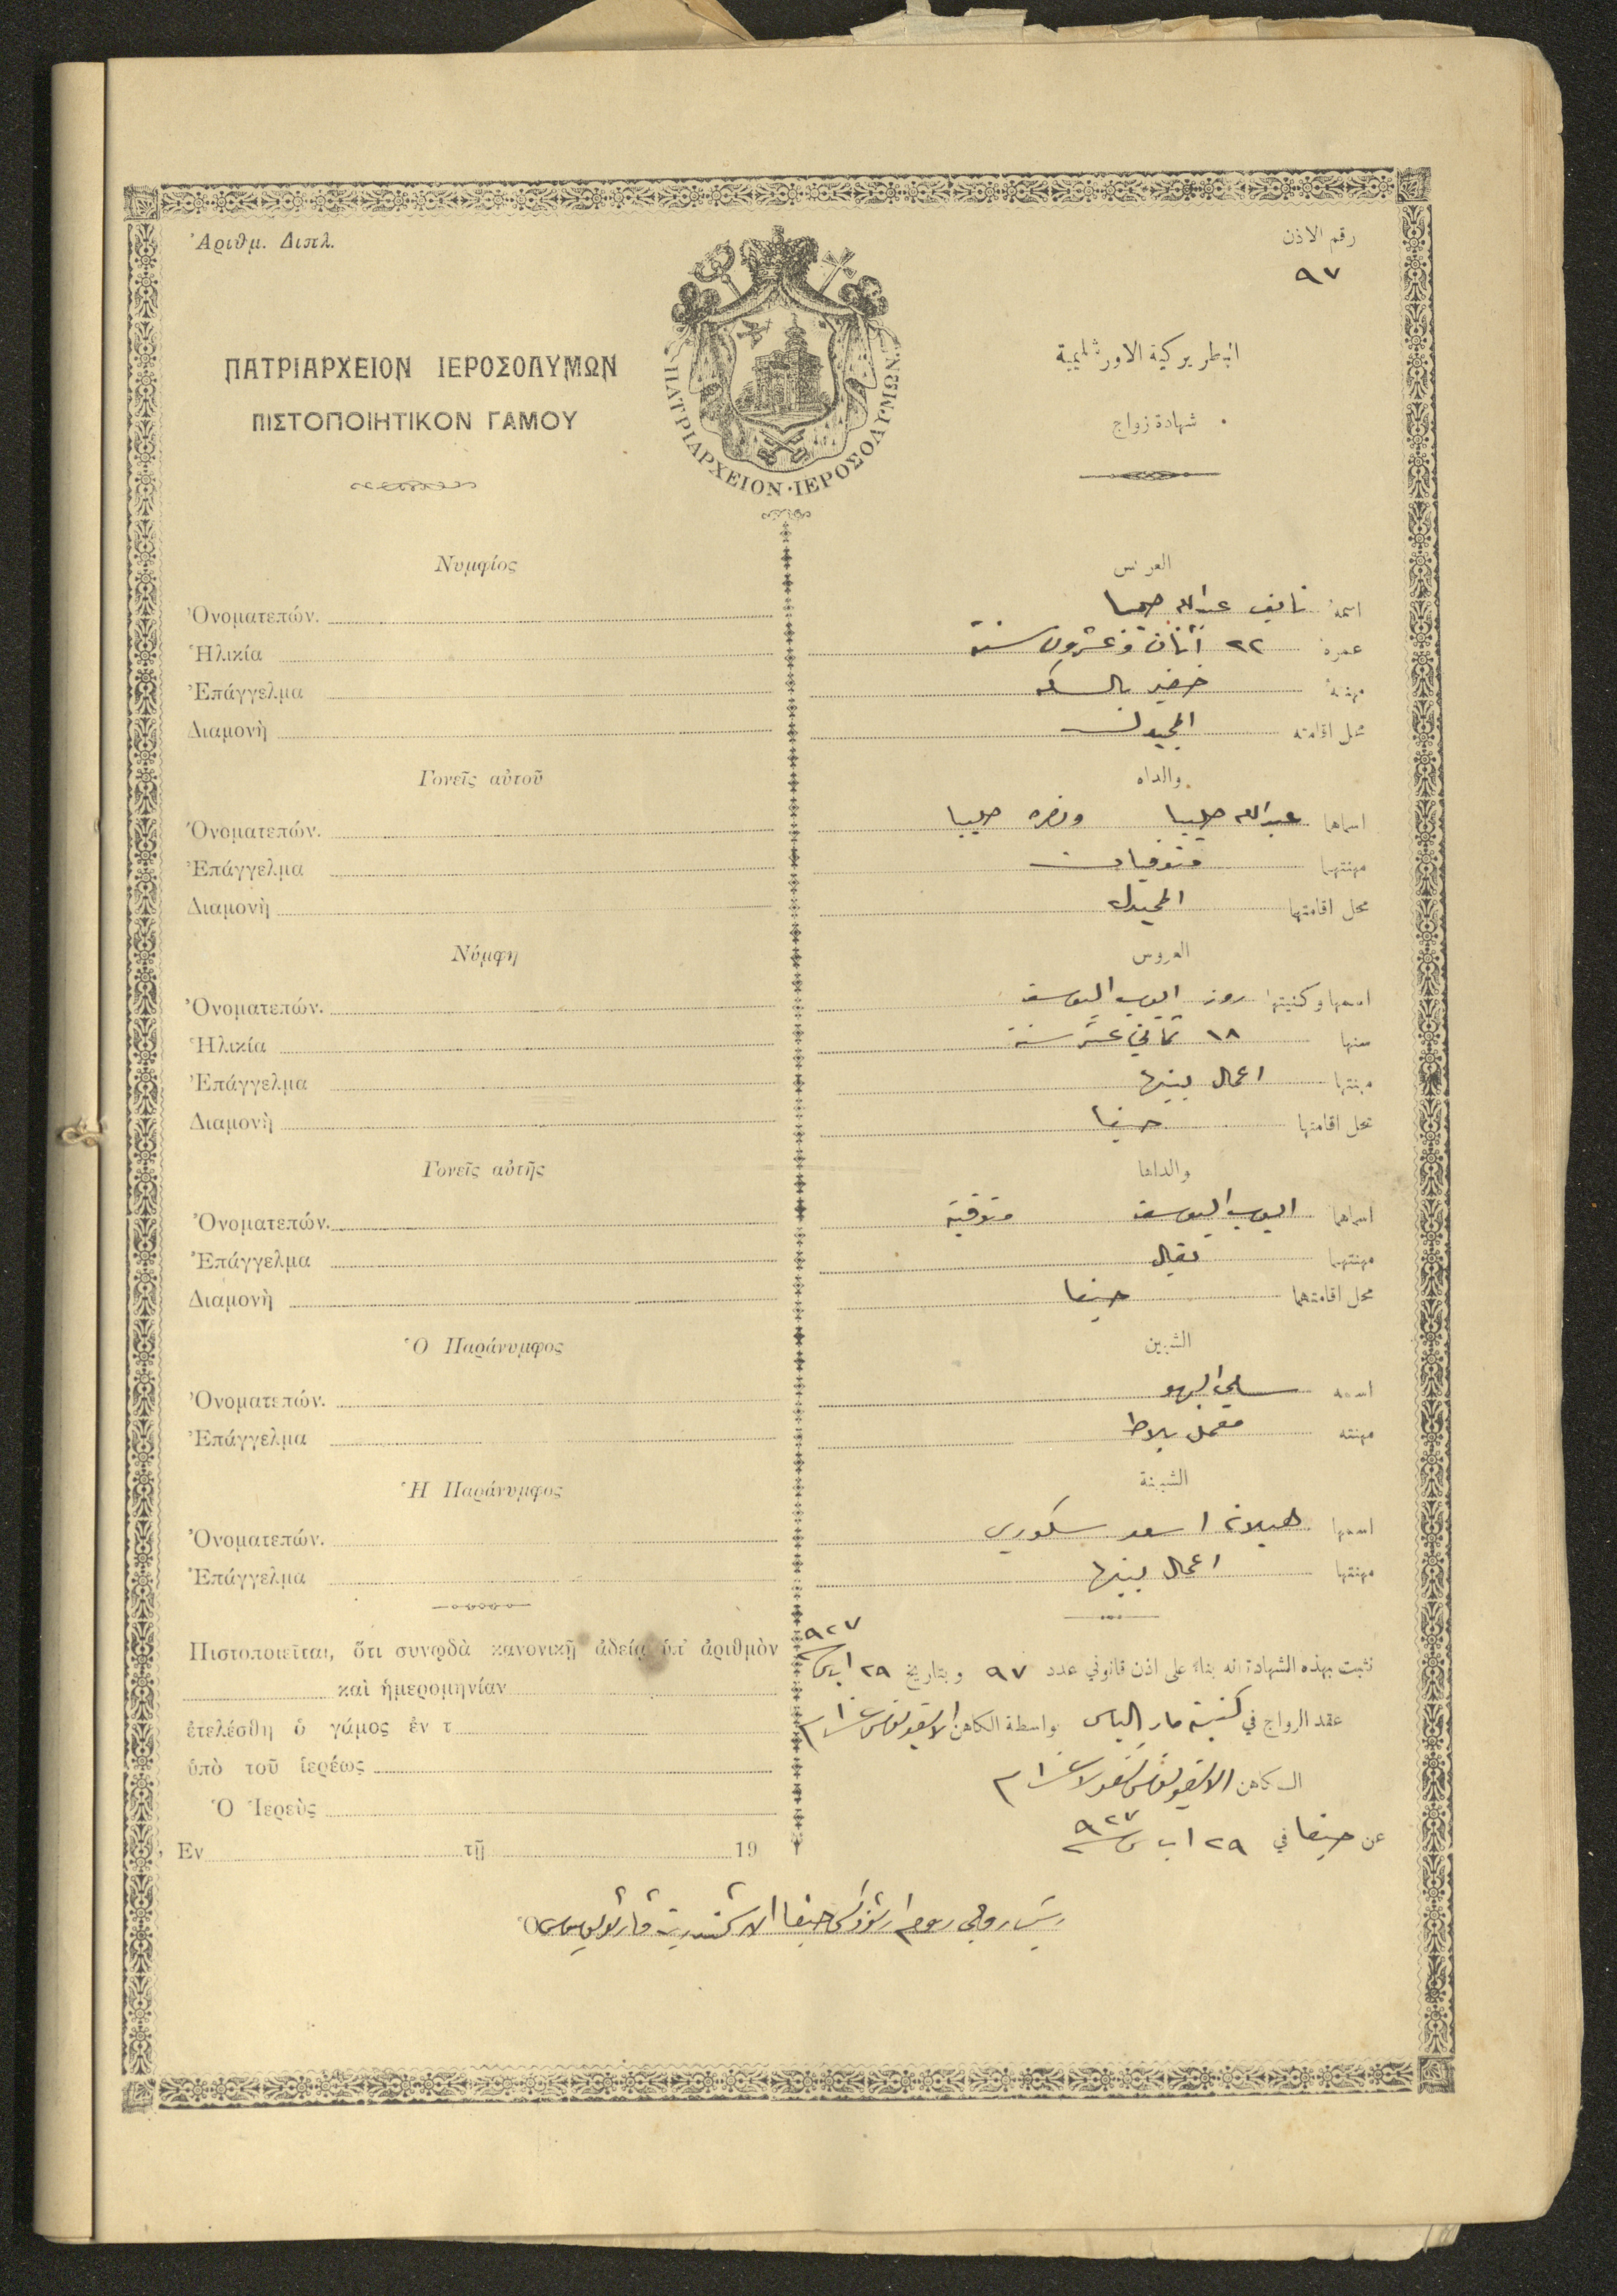 Ἀριθμ. Διπλ.
رقم الاذن
٩٧
ΠΑΤΡΙΑΡΧΕΙΟΝ ΙΕΡΟΣΟΛΥΜΩΝ
ΠΙΣΤΟΠΟΙΗΤΙΚΟΝ ΓΑΜΟΥ
ΠΑΤΡΙΑΡΧΕΙΟΝ · ΙΕΡΟΣΟΛΥΜΩΝ
البطريركية الاورشليمية
شهادة زواج
Νυμφίος
Ὀνοματεπών.
Ἡλικία
Ἐπάγγελμα
Διαμονὴ
Γονεῖς αὐτοῦ
Ὀνοματεπών.
Ἐπάγγελμα
Διαμονὴ
Νύμφη
Ὀνοματεπών.
Ἡλικία
Ἐπάγγελμα
Διαμονὴ
Γονεῖς αὐτῆς
Ὀνοματεπών.
Ἐπάγγελμα
Διαμονὴ
Ὁ Παράνυμφος
Ὀνοματεπών.
Ἐπάγγελμα
Ἡ Παράνυμφος
Ὀνοματεπών.
Ἐπάγγελμα
Πιστοποιεῖται, ὅτι συνῳδὰ κανονικῇ ἀδείᾳ ὑπ' ἀριθμὸν
καὶ ἡμερομηνίαν
ἐτελέσθη ὁ γάμος ἐν τ
ὑπὸ τοῦ ἱερέως
Ὁ Ἱερεὺς
Ἐν τῇ 19
العريس
اسمه نايف عبدالله صليبا
عمره ٢٢ اثنان وعشرون سنة
مهنته خفير بالسكه
محل اقامته المجيدل
والداه
اسماهما عبدالله صليبا ونصره صليبا
مهنتهما متوفيان
محل اقامتهما المجيدل
العروس
اسمها وكنيتها روز ايوب اليوسف
سنها ١٨ ثماني عشر سنة
مهنتها اعمال بيتها
محل اقامتها حيفا
والداها
اسماهما ايوب اليوسف متوفية
مهنتهما بقال
محل اقامتهما حيفا
الشبين
اسمه البهو
مهنته معمل بلاط
الشبينة
اسمها هيلانه اسعد سكوري
مهنتها اعمال بيتها
نثبت بهذه الشهادة انه بناء على اذن قانوني عدد ٩٧ وبتاريخ ٢٩ اب سنة ٩٢٧
عقد الزواج في كنيسة مار الياس بواسطة الكاهن
الكاهن
عن حيفا في ٢٩ اب سنة ٩٢٧
رئيس روحي روم ارثوذكس حيفا
Ὁ